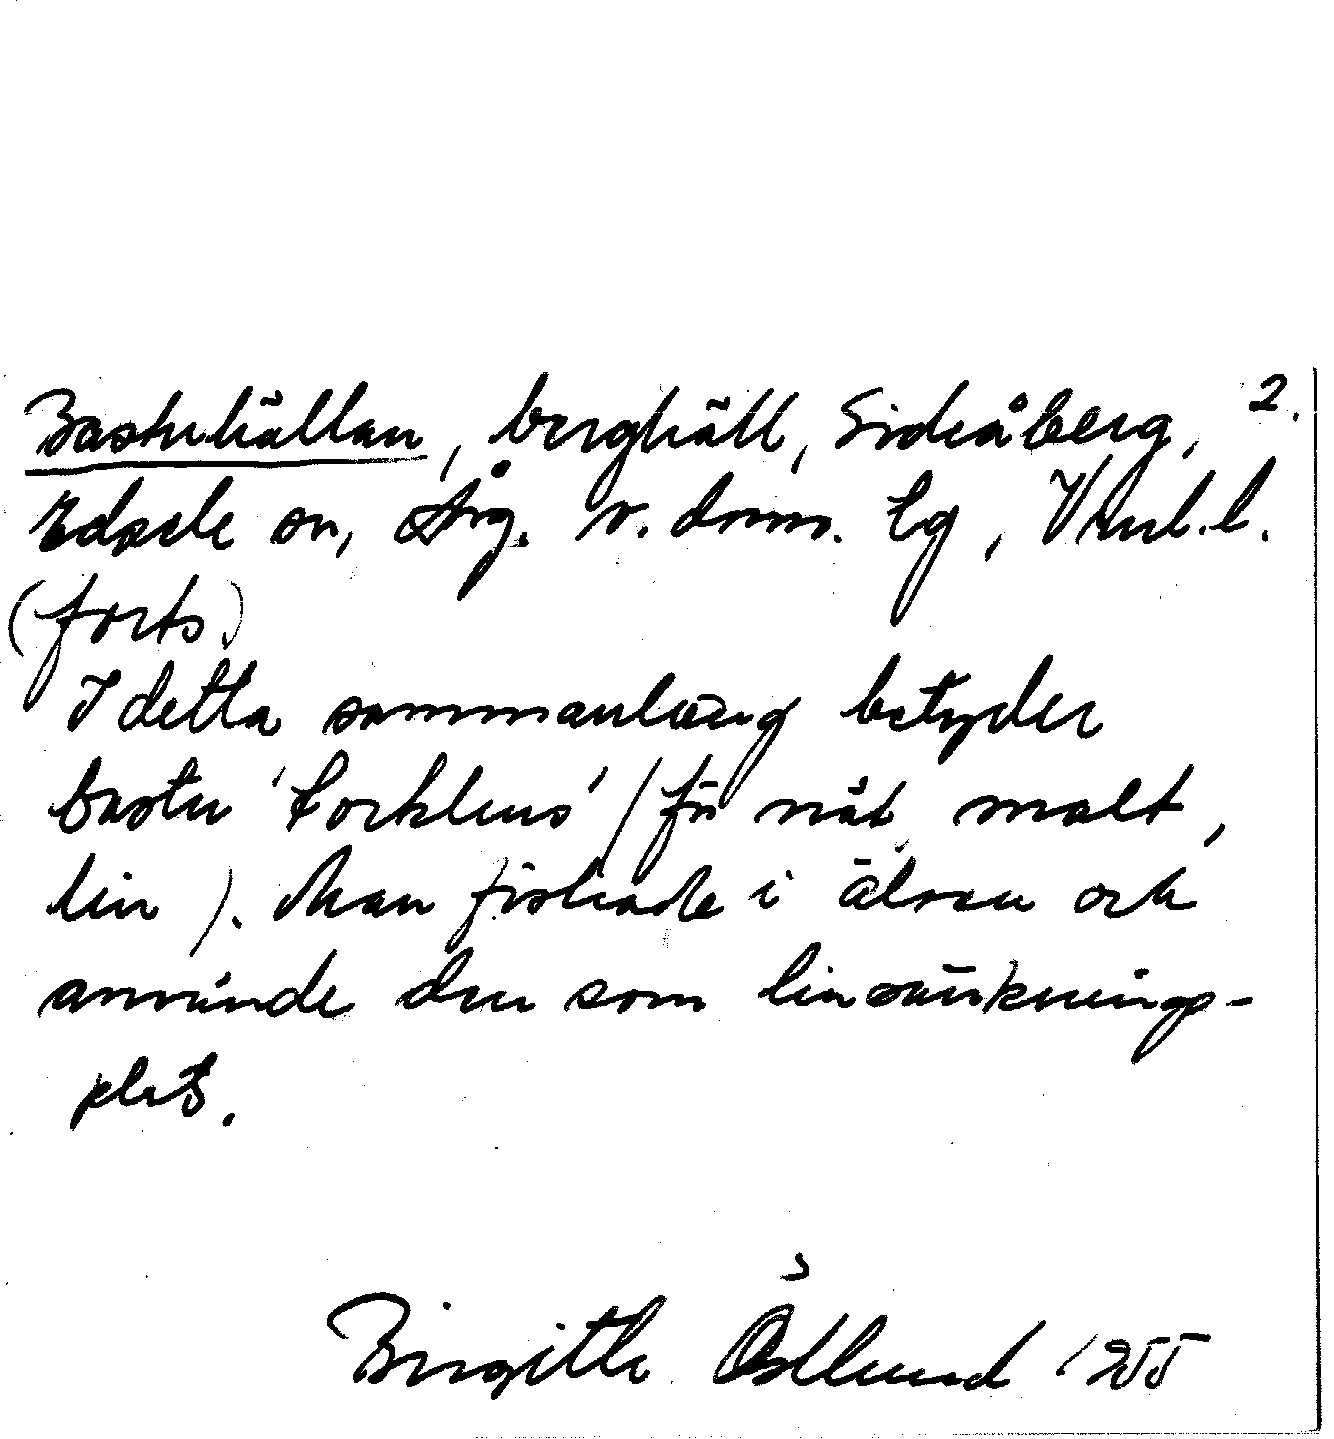 Bastuhällan, berghäll, Sidsåberg, 2.
Edsele sn, Ång. v. doms. lg, Vknl.l.
(forts)
I detta sammanhang betyder
bastu 'torkhus' (för nät, malt,
lin). Man fiskade i älven och
använde den som linsänknings-
plats.
Birgitta Östlund 1955